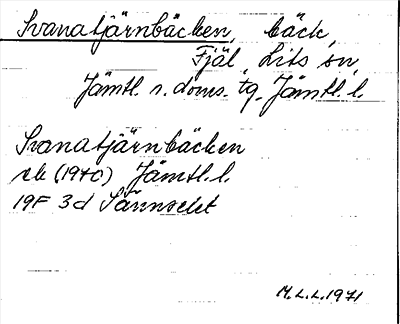 Svanatjärnbäcken, bäck,
Fjäl, Lits sn,
Jämtl. n. doms. tg. Jämtl. l.
Svanatjärnbäcken
rk (1970) Jämtl. l.
19F 3d Sännselet
M.L.L. 1971